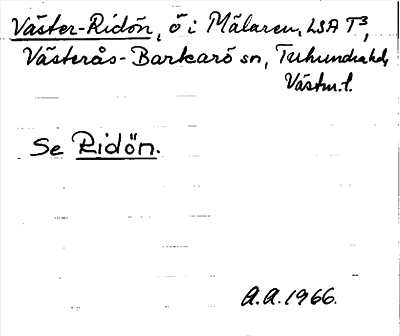 Väster-Ridön, ö i Mälaren, LSA T³,
Västerås-Barkarö sn, Tuhundra hd,
Västm. l.
Se Ridön.
A.A. 1966.